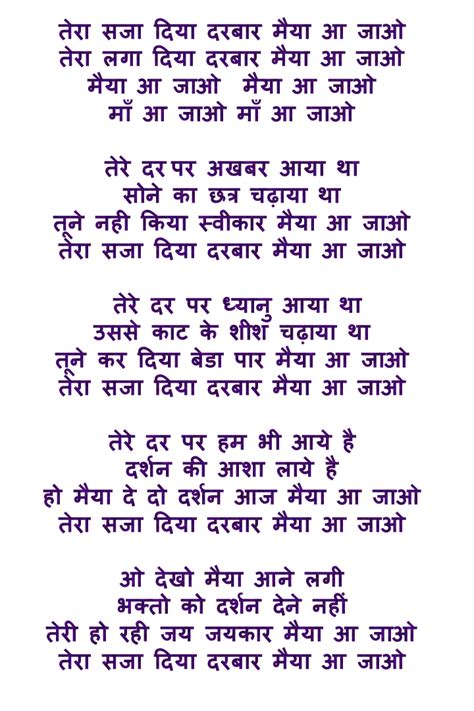 तेरा सजा दिया दरबार मैया आ जाओ
तेरा लगा दिया दरबार मैया आ जाओ
मैया आ जाओ मैया आ जाओ
माँ आ जाओ माँ आ जाओ
तेरे दर पर अखबर आया था
सोने का छत्र चढ़ाया था
तूने नही किया स्वीकार मैया आ जाओ
तेरा सजा दिया दरबार मैया आ जाओ
तेरे दर पर ध्यानु आया था
उससे काट के शीश चढ़ाया था
तूने कर दिया बेडा पार मैया आ जाओ
तेरा सजा दिया दरबार मैया आ जाओ
तेरे दर पर हम भी आये है
दर्शन की आशा लाये है
हो मैया दे दो दर्शन आज मैया आ जाओ
तेरा सजा दिया दरबार मैया आ जाओ
ओ देखो मैया आने लगी
भक्तो को दर्शन देने नहीं
तेरी हो रही जय जयकार मैया आ जाओ
तेरा सजा दिया दरबार मैया आ जाओ